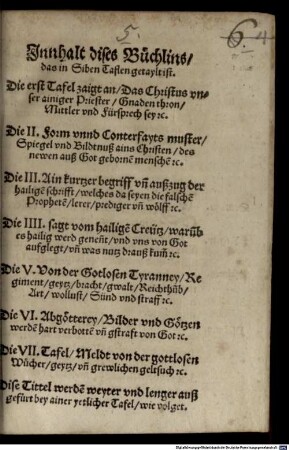 5.
6. 4
Jnnhalt dises Büchlins/
das in Siben Taflen getaylt ist.
Die erst Tafel zaigt an/Das Christus vn-
ser ainiger Priester/ Gnaden thron/
Mittler vnd Fürsprech sey ꝛc.
Die II. Form vnnd Conterfayts muster/
Spiegel vnd Bildtnuß ains Christen/des
newen auß Got gebornē menschē ꝛc.
Die III. Ain kurtzer begriff vn̄ außzug der
hailigē schrifft/welches da seyen die falschē
Prophetē/lerer/prediger vn̄ wölff ꝛc.
Die IIII. sagt vom hailigē Creütz/warūb
es hailig werd genēnt/vnd vns von Got
auffglegt/vn̄ was nutz drauß kum̄ ꝛc.
Die V. Von der Gotlosen Tyranney/Re
giment/geytz/bracht/gwalt/Reichthūb/
Art/wollust/Sünd vnd straff ꝛc.
Die VI. Abgötterey/Bilder vnd Götzen
werdē hart verbottē vn̄ gstraft von Got ꝛc.
Die VII. Tafel/Meldt von der gottlosen
Wücher/geytz/vn̄ grewlichen geltsuch ꝛc.
Dise Tittel werdē weyter vnd lenger auß
gefürt bey ainer yetlicher Tafel/wie volget.